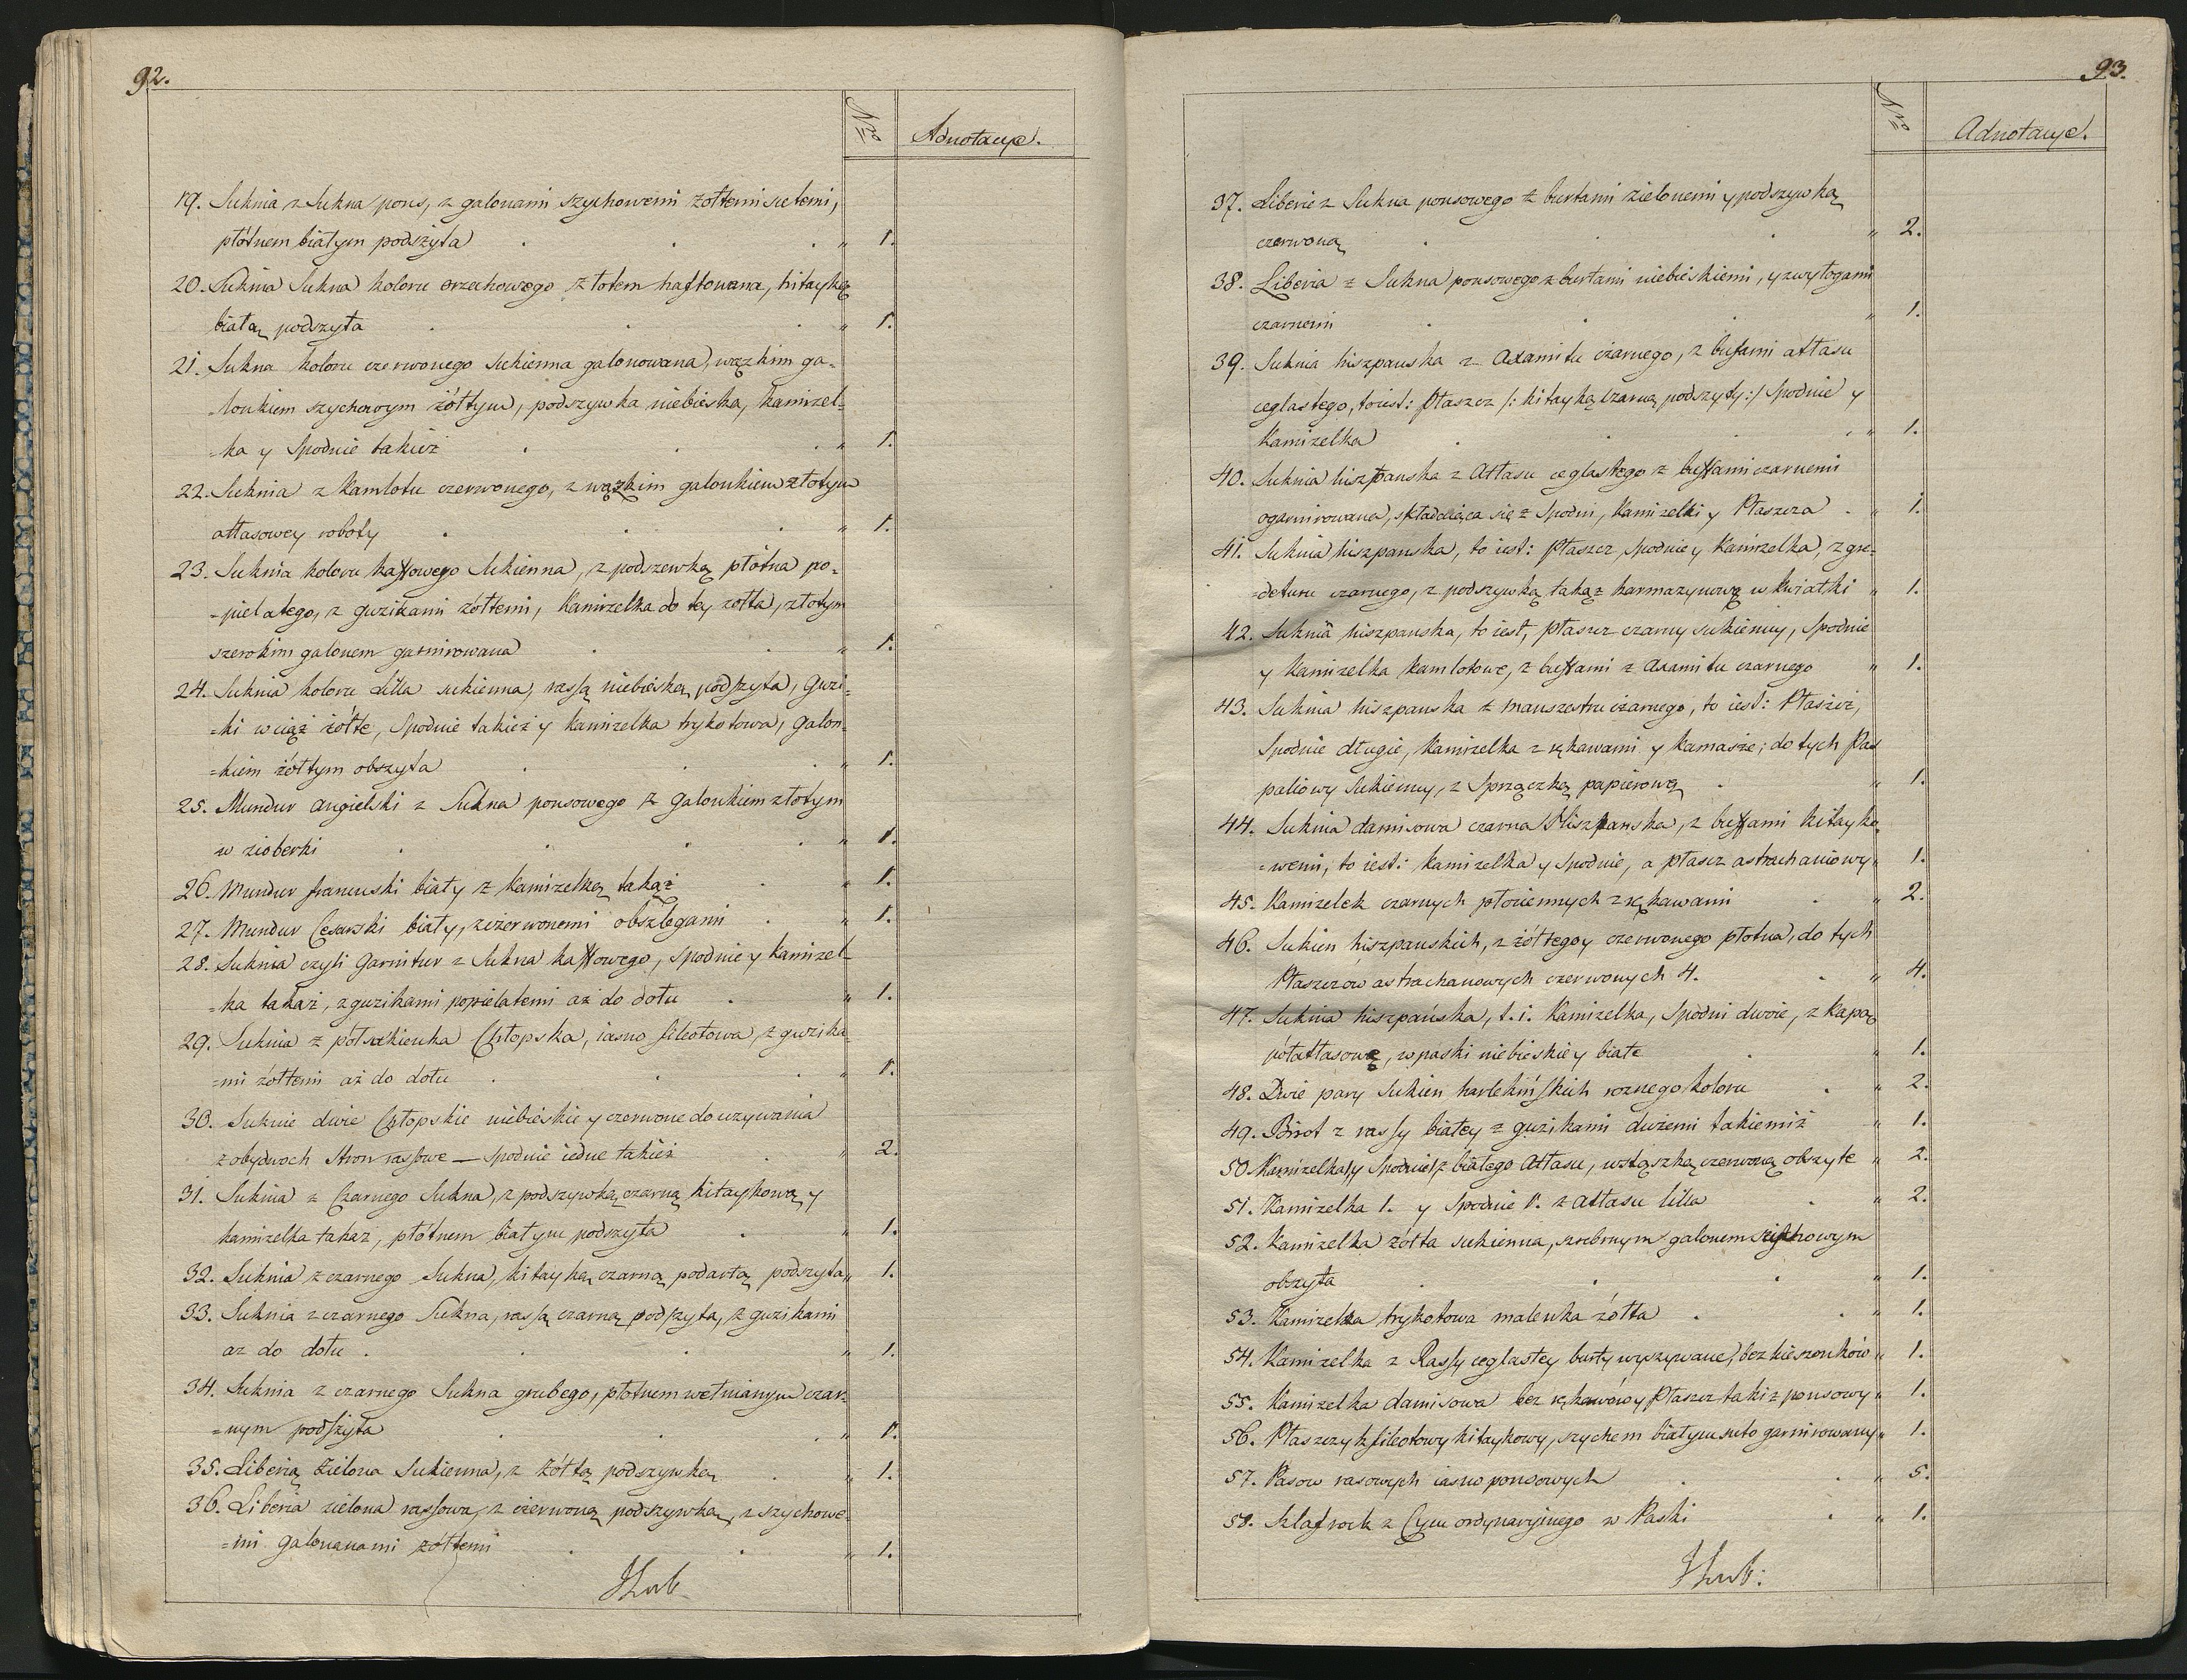 92.
Nro
Adnotacye.
19. Suknia z Sukna pons, z galonami szychowemi żołtemi sutemi,
płótnem białym podszyta . . . " 1.
20. Suknia Sukna koloru orzechowego złotem haftowana, kitayką
białą podszyta . . . " 1.
21. Sukna koloru czerwonego sukienna galonowana, wązkim ga-
-lonkiem szychowym żółtym, podszywka niebieska, kamizel-
-ka y Spodnie takież . . . " 1.
22. Suknia z Kamlotu czerwonego, z wązkim galonkiem złotym
atłasowey roboty . . . " 1.
23. Suknia koloru kaffowego Sukienna, z podszewką płótna po-
-pielatego, z guzikami żółtemi, Kamizelka do tey żołta, złotym
szerokim galonem garnirowana . . " 1.
24. Suknia koloru Lilla sukienna, rassą niebieską podszyta, guzi-
-ki wciąż żółte, Spodnie takież y kamizelka trykotowa, galon-
-kiem żółtym obszyta . . . " 1.
25. Mundur angielski z Sukna ponsowego z galonkiem złotym
w zioberki . . . . " 1.
26. Mundur francuski biały z kamizelką takąż . " 1.
27. Mundur Cesarski biały, z czerwonemi obszlegami . " 1.
28. Suknia czyli Garnitur z Sukna kaffowego, spodnie y kamizel-
-ka takaż, z guzikami popielatemi aż do dołu . " 1.
29. Suknia z pół sukienka Chłopska, iasno fileotowa, z guzika-
-mi żółtemi aż do dołu . . . " 1.
30. Suknie dwie Chłopskie niebieskie y czerwone do używania
z obydwoch stron rassowe — Spodnie iedne takież . " 2.
31. Suknia z Czarnego Sukna, z podszywką czarną kitaykową y
kamizelka takaż, płótnem białym podszyta . " 1.
32. Suknia z czarnego Sukna, kitayką czarną podartą podszyta " 1.
33. Suknia z czarnego Sukna, rassą czarną podszyta, z guzikami
aż do dołu . . . " 1.
34. Suknia z czarnego Sukna grubego, płótnem wełnianym czar-
-nym podszyta . . . " 1.
35. Liberią zielona Sukienna, z żółtą podszywką . " 1.
36. Liberia zielona rassowa, z czerwoną podszywką, z szychowe-
-mi galonanami żółtemi . . " 1.
93.
Nro
Adnotacye.
37. Liberie z Sukna ponsowego z burtami zielonemi y podszywką
czerwoną . . . " 2.
38. Liberia z Sukna ponsowego z burtami niebieskiemi, y z wyłogami
czarnemi . . . " 1.
39. Suknia hiszpanska z Axamitu czarnego, z bufami atłasu
ceglastego, to iest: Płaszcz /: kitayką czarną podszyty :/ Spodnie y
Kamizelka . . . . " 1.
40. Suknia hiszpanska z Atłasu ceglastego z buffami czarnemi
ogarnirowana, składaiąca się z Spodni, Kamizelki y Płaszcza . " 1.
41. Suknia hiszpanska, to iest: Płaszcz, Spodnie y Kamizelka, z gre-
-deturu czarnego, z podszywką takąż karmazynową w kwiatki " 1.
42. Suknia hiszpanska, to iest, płaszcz czarny sukienny, Spodnie
y Kamizelka kamlotowe, z buffami z Axamitu czarnego " 1.
43. Suknia hiszpanska z manszestru czarnego, to iest: Płaszcz,
Spodnie długie, Kamizelka z rękawami y kamasze; do tych Pas
paliowy Sukienny, z Sprzączką papierową . " 1.
44. Suknia damisowa czarna Hiszpanska, z buffami kitayko-
-wemi, to iest: kamizelka y Spodnie, a płaszcz astrachaniowy " 1.
45. Kamizelek czarnych płociennych z rękawami . " 2.
46. Sukien hiszpanskich, z żółtego y czerwonego płotna, do tych
Płaszczow astrachanowych czerwonych 4. . " 4.
47. Suknia hiszpańska, t.i. Kamizelka, Spodni dwoie, z Kapą
półatłasową, w paski niebieskie y białe . " 1.
48. Dwie pary Sukien harlekińskich roznego koloru . " 2.
49. Birot z rassy białey z guzikami dużemi takiemiż " 1.
50. Kamizelka y Spodnie z białego Atłasu, wstąszką czerwoną obszyte " 2.
51. Kamizelka 1. y Spodnie 1. z Atłasu lilla . " 2.
52. Kamizelka żółta sukienna, srebrnym galonem szychowym
obszyta . . . " 1.
53. Kamizelka trykotowa malenka żółta . . " 1.
54. Kamizelka z Rassy ceglastey burty wyszywane, bez kieszonków " 1.
55. Kamizelka damisowa bez rękawów y Płaszcz takiż ponsowy " 1.
56. Płaszczyk fileotowy kitaykowy, szychem białym suto garnirowany " 1.
57. Pasow rasowych iasno ponsowych . . " 5.
58. Szlafrock z Cycu ordynaryinego w Paski . " 1.